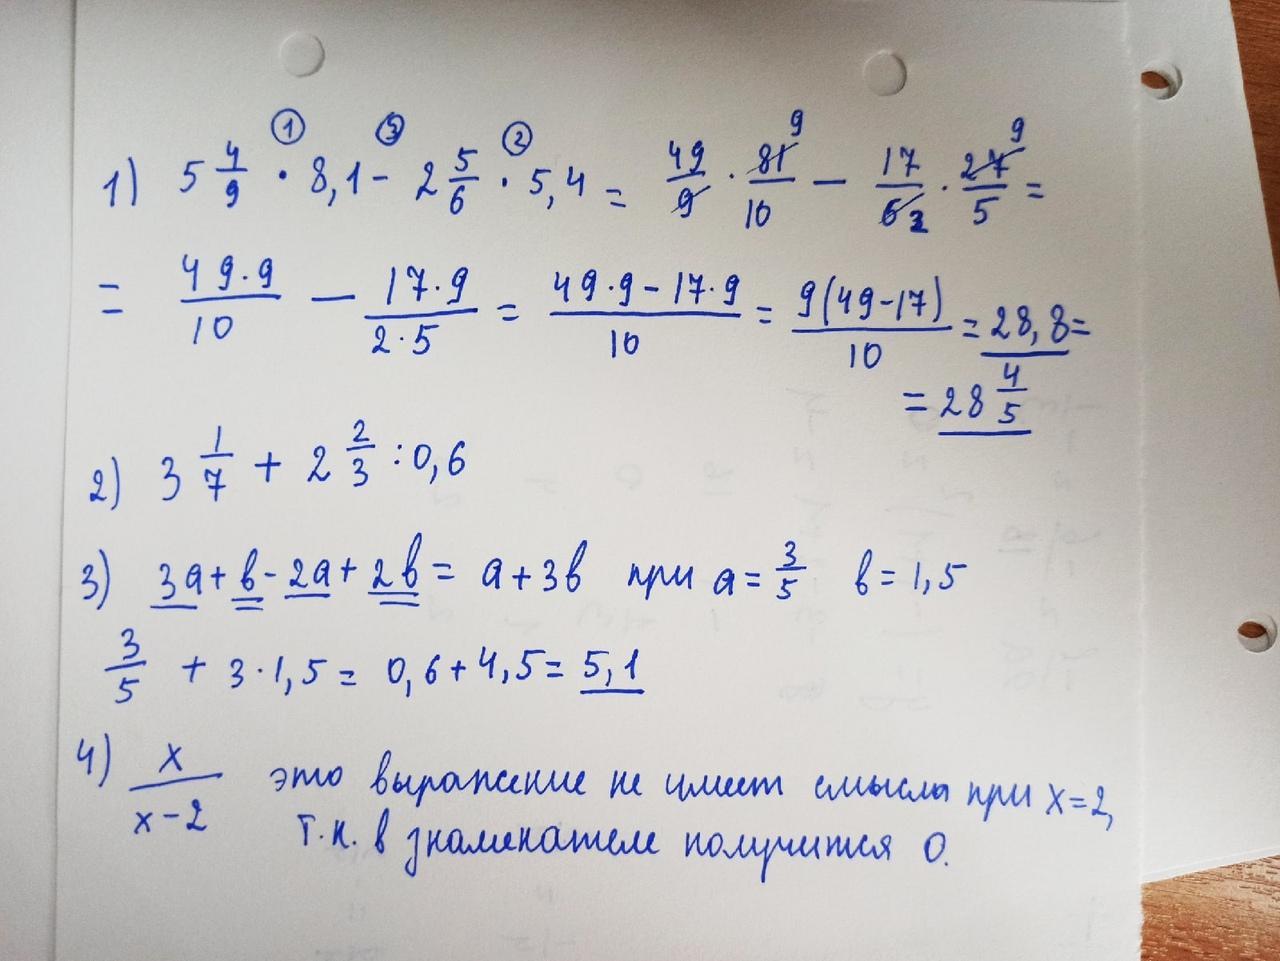 ① ③ ②
1) 5 4/9 · 8,1 - 2 5/6 · 5,4 = 49/9 · 81/10 9 - 17/6 2 · 27/5 9 =
= 49·9/10 - 17·9/2·5 = 49·9-17·9/10 = 9(49-17)/10 = 28,8 =
= 28 4/5
2) 3 1/7 + 2 2/3 : 0,6
3) 3a + b - 2a + 2b = a + 3b при a = 3/5 b = 1,5
3/5 + 3·1,5 = 0,6 + 4,5 = 5,1
4) x/x-2 это выражение не имеет смысла при x=2,
т.к. в знаменателе получится 0.